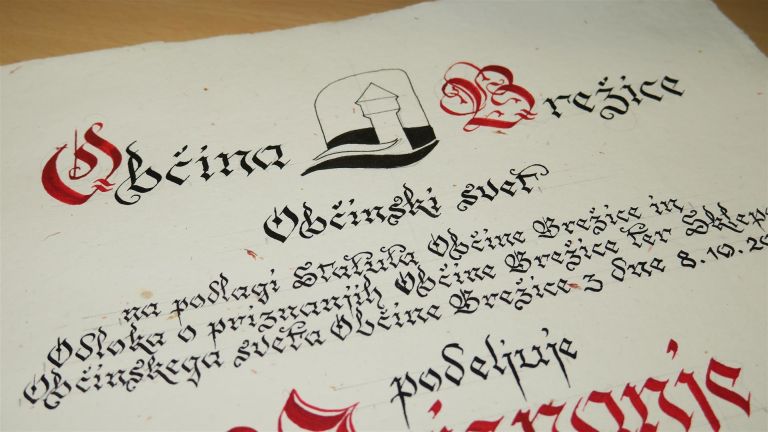 Občina Brežice
Občinski svet
na podlagi Statuta Občine Brežice in
Odloka o priznanjih Občine Brežice ter Sklepa
Občinskega sveta Občine Brežice z dne 8.10.20
podeljuje